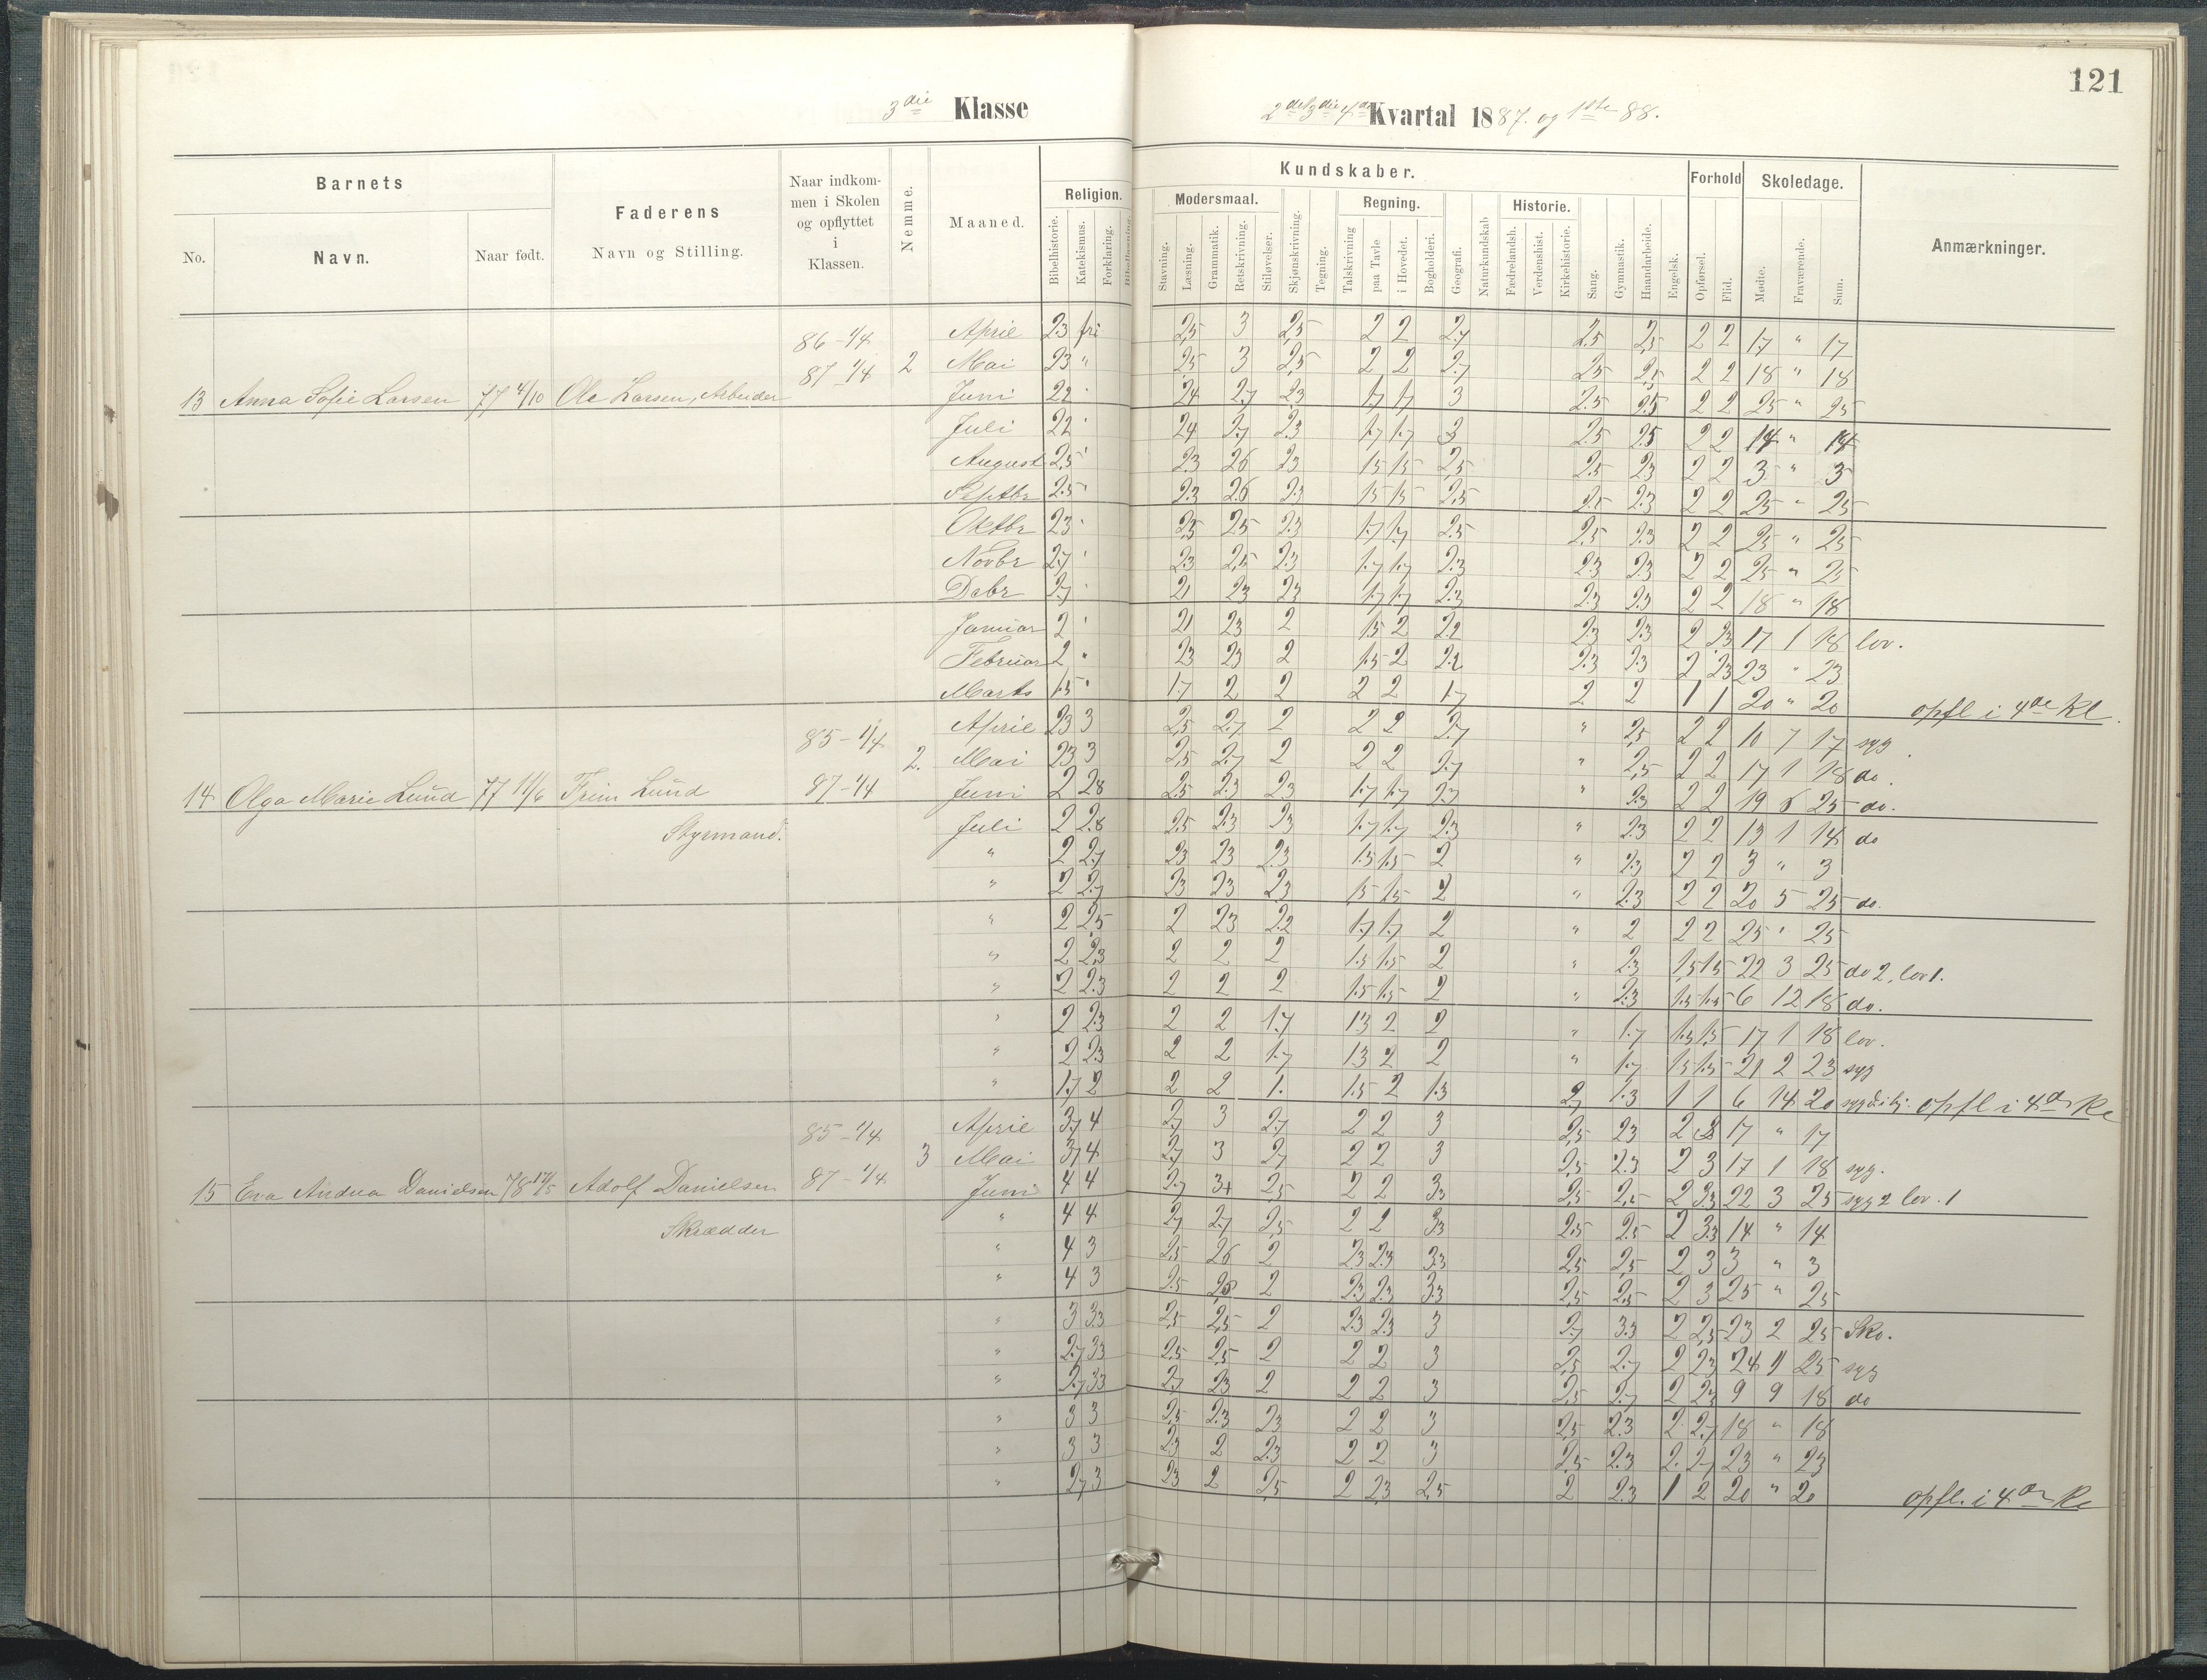 121
3die Klasse 2det 3die 4de Kvartal 1887. og 1ste 88.
Barnets
No.
Navn.
Naar født.
Faderens
Navn og Stilling.
Naar indkom-
men i Skolen
og opflyttet
i
Klassen.
Nemme.
Maaned.
Kundskaber.
Religion.
Bibelhistorie.
Katekismus.
Forklaring.
Bibellæsning.
Modersmaal.
Stavning.
Læsning.
Grammatik.
Retskrivning.
Stiløvelser.
Skjønskrivning.
Tegning.
Regning.
Talskrivning
paa Tavle
i Hovedet.
Bogholderi.
Geografi.
Naturkundskab
Historie.
Fædrelandsh.
Verdenshist.
Kirkehistorie.
Sang.
Gymnastik.
Haandarbeide.
Engelsk.
Forhold
Opførsel.
Flid.
Skoledage.
Mødte.
Fraværende.
Sum.
Anmærkninger.
86-1/4 April 2.3 fri 2,5 3 2,5 2 2 2.7 2.5 2,5 2 2 17 " 17
87-1/4 2 Mai 23 " 25 3 2,5 2 2 2.7 25 2,5 2 2 18 " 18
13 Anna Sofie Larsen 77 4/10 Ole Larsen, Arbeider Juni 22 24 2.7 23 1.7 1.7 3 2.5 25 2 2 25 " 25
Juli 22 24 2.7 2.3 1.7 1.7 3 2.5 25 2 2 14 " 14
August 2,5 23 26 23 15 15 2,5 2.5 23 2 2 3 " 3
Septbr 2.5 2.3 2.6 2.3 15 15 2,5 2.5 2.3 2 2 25 " 25
Oktbr 23 2,5 25 2.3 1.7 1.7 2.5 2.5 2.3 2 2 25 " 25
Novbr 2.7 2.3 2,5 2.3 1.7 1.7 2.3 2.3 2.3 2 2 25 " 25
Debr 2.7 21 23 23 1.7 1.7 2.3 2.3 2.3 2 2 18 " 18
Januar 2 21 23 2 1.5 2 2.2 2.3 2.3 2 23 17 1 18 lov.
Februar 2 " 23 23 2 1.5 2 2.2 2.3 2.3 2 23 23 " 23
Marts 1.5 " 1.7 2 2 2 2 1.7 2 2 1 1 20 " 20 opfl i 4de Kl.
85-1/4 April 23 3 2,5 2.7 2 2 2 2.7 " 2,5 2 2 10 7 17 syg
2. Mai 23 3 2,5 2.7 2 2 2 2.7 " 2,5 2 2 17 1 18 do.
14 Olga Marie Lund 77 11/6 Lund 87-1/4 Juni 2 28 25 2.3 23 1.7 1.7 23 " 2.3 2 2 19 6 25 do.
Styrmand. Juli 2 2.8 2,5 2.3 23 1.7 1.7 2.3 " 2.3 2 2 13 1 14 do
" 2 2.7 23 23 2.3 1.5 1.5 2 " 2.3 2 2 3 " 3
" 2 2.7 23 23 2,3 1.5 1.5 2 " 2.3 2 2 20 5 25 do.
" 2 2.5 2 23 22 1.7 1.7 2 " 2 2 2 25 " 25
" 2 2.3 2 2 2 1.5 1.5 2 " 2.3 1,5 1.5 22 3 25 do 2, lov 1.
" 2 2.3 2 2 2 1.5 1.5 2 " 2.3 1.5 1.5 6 12 18 do.
" 2 23 2 2 1.7 13 2 2 " 1.7 1.5 1.5 17 1 18 lov.
" 2 23 2 2 1.7 13 2 2 " 1.7 1.5 1.5 21 2 23 syg
" 1.7 2 2 2 1. 1.5 2 1.3 2.7 1.3 1 1 6 14 20 opfl i 4de Kl
85-1/4 April 3.7 4 2.7 3 2.7 2 2 3 2,5 23 2 3 17 " 17
3 Mai 3.7 4 2.7 3 2.7 2 2 3 2,5 2.3 2 3 17 1 18 syg.
15 Eva Andrea Danielsen 78 17/5 Adolf Danielsen 87-1/4 Juni 4 4 2.7 3+ 2,5 2 2 3.3 2,5 2,5 2 3.3 22 3 25 syg 2 lov. 1
Skrædder " 4 4 2.7 2.7 2,5 2 2 3.3 2.5 2.5 2 3.3 14 " 14
" 4 3 2,5 26 2 23 2.3 3.3 2,5 2,5 2 3 3 " 3
" 4 3 2.5 2,6 2 2.3 2.3 3.3 2,5 2,5 2 3 25 " 25
" 3 3.3 2,5 2,5 2 2.3 2.3 3 2.7 3.3 2 2,5 23 2 25 Sko.
" 2.7 33 2.5 2,5 2 2 2 3 2,5 2.7 2 23 24 1 25 syg
" 2.7 33 2.7 23 2 2 2 3 2,5 2.7 2 23 9 9 18 do
" 3 3 2,5 2.3 23 2 2 3 2,5 2.3 2 2.7 18 " 18
" 3 3 2.3 2 2.3 2 2 3 2,5 2.3 2 2.7 23 " 23
" 2.7 3 23 2 2,5 2 2,3 2,5 2 2.3 1 2 20 " 20 opfl. i 4de Kl